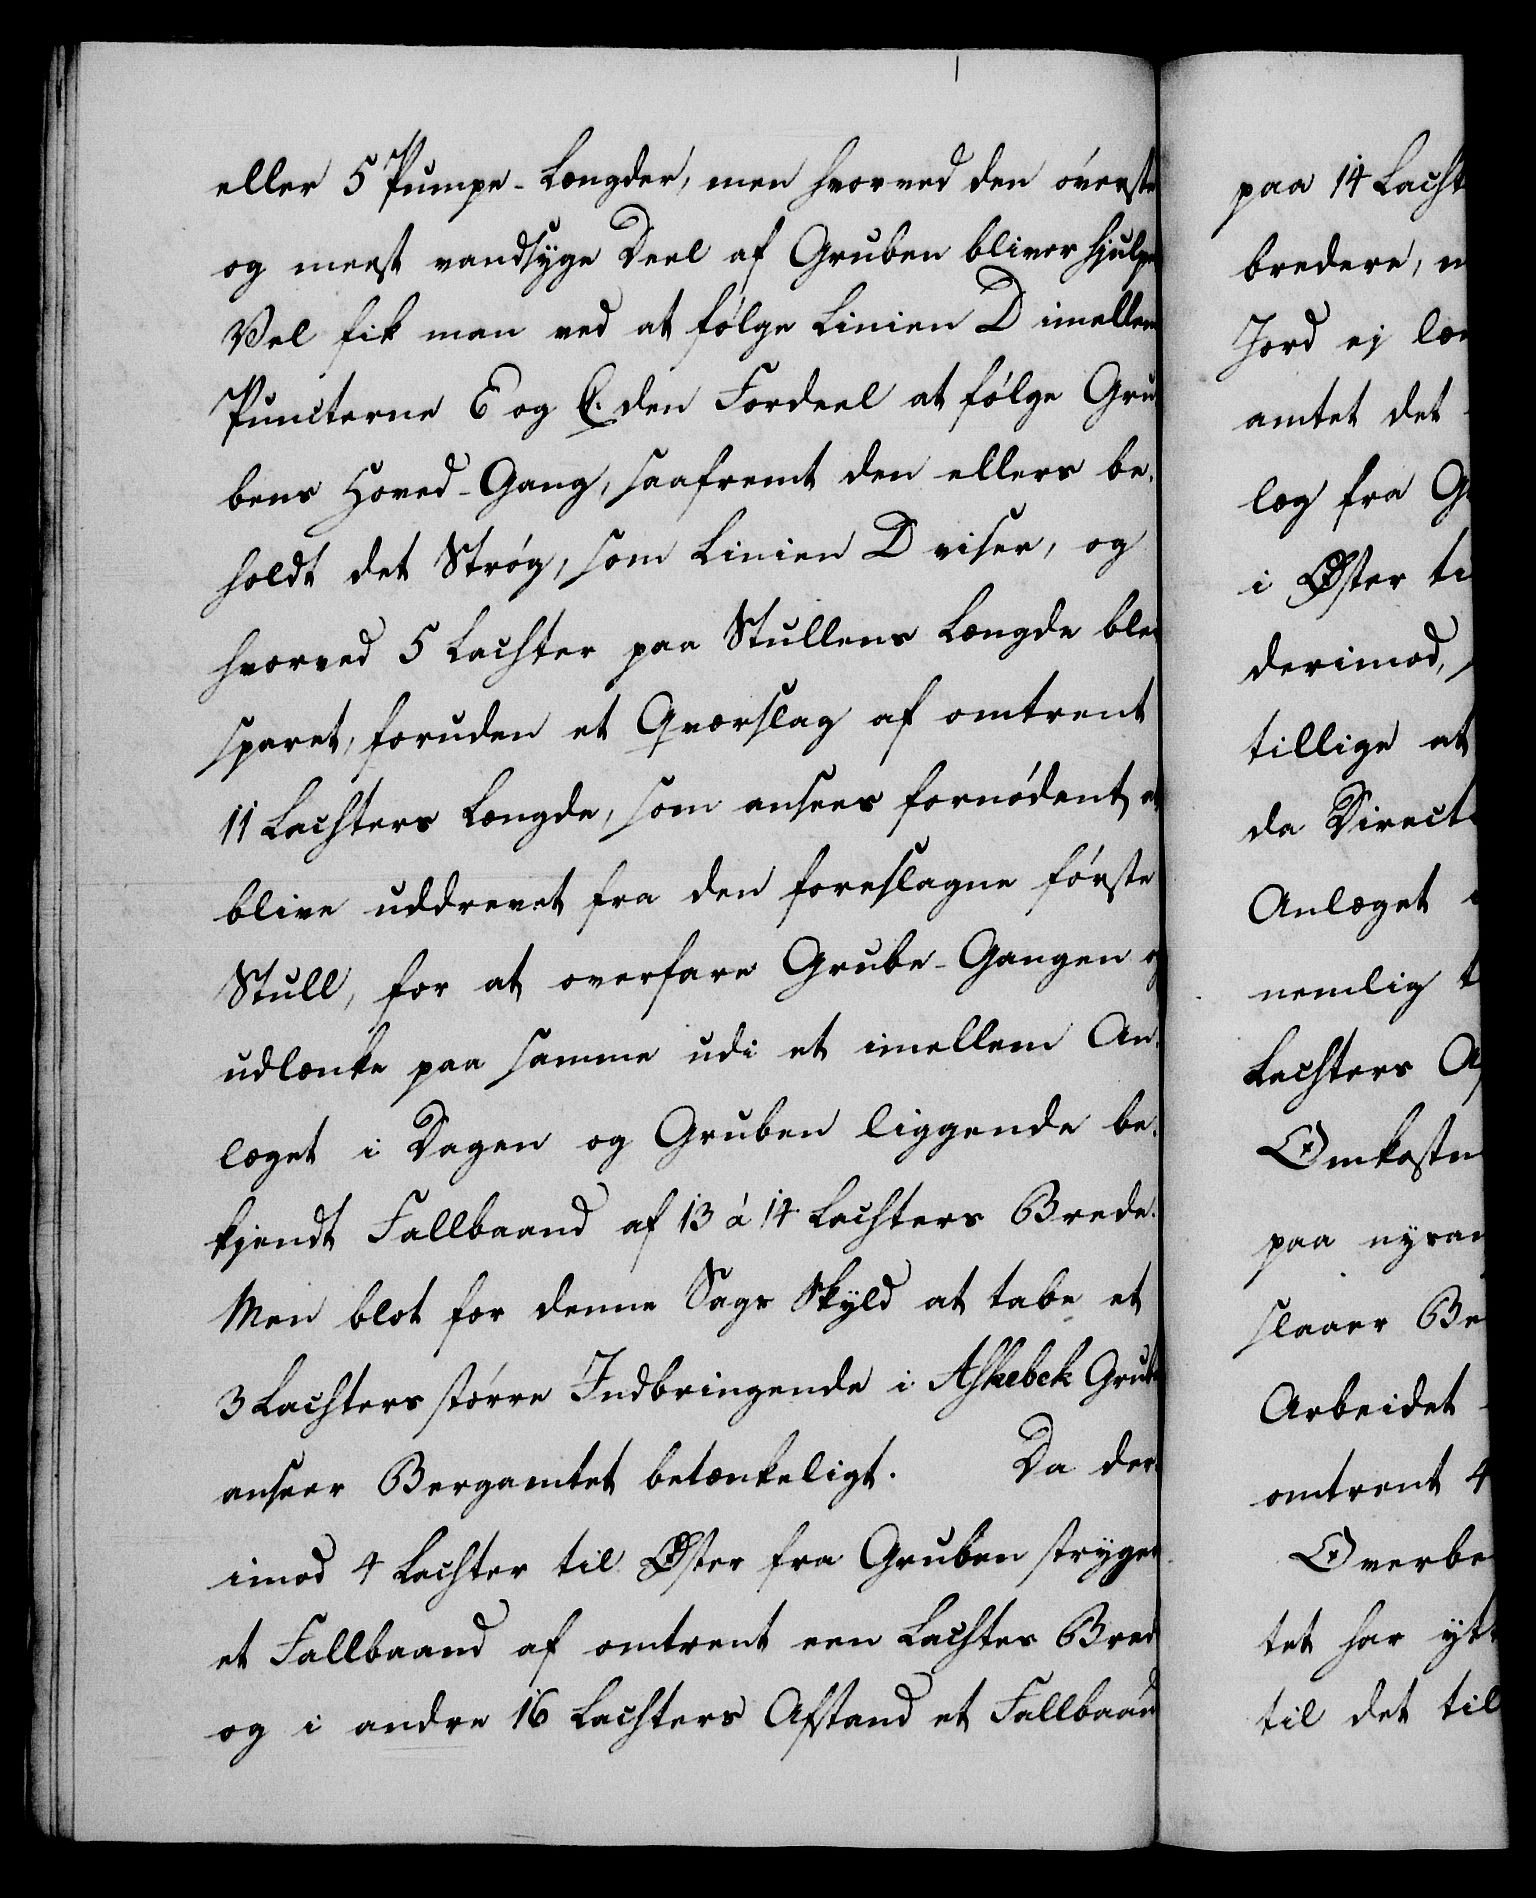 eller 5 Pumpe-Længder, men hvorved den øverste
og meest vandsyge Deel af Gruben bliver hjulpe
Vel fik man ved at følge Linien D imellem
Puncterne E og C. den Fordeel at følge Gru
bens Hoved-Gang, saafremt den ellers be-
holdt det Strøg, som Linien D viser, og
hvorved 5 Lachter paa Stullens Længde blev
sparet, foruden et Qværslag af omtrent
11 Lachters Længde, som ansees fornødent at
blive uddrevet fra den foreslagne første
Stull, for at overfare Grube-Gangen og
udlænke paa samme udi et imellem An-
læget i Dagen og Gruben liggende be-
kjendt Fallbaand af 13 à 14 Lachters Brede.
Men blot for denne Sags Skyld at tabe et
3 Lachters større Indbringende i Askebek Grube
anseer Bergamtet betænkeligt. Da der-
imod 4 Lachter til Øster fra Gruben stryger
et Fallbaand af omtrent een Lachter Bred
og i andre 16 Lachters Afstand et Fallbaand
paa 14 Lacht
bredere, m
Jord ej læn
amtet det
læg fra G
i Øster ti
derimod,
tillige at
da Direct
Anlæget
nemlig t
Lachters Af
Omkostn
paa nysan
slaaer Be
Arbeidet
omtrent 4
Overbe
tet har ytt
til det til